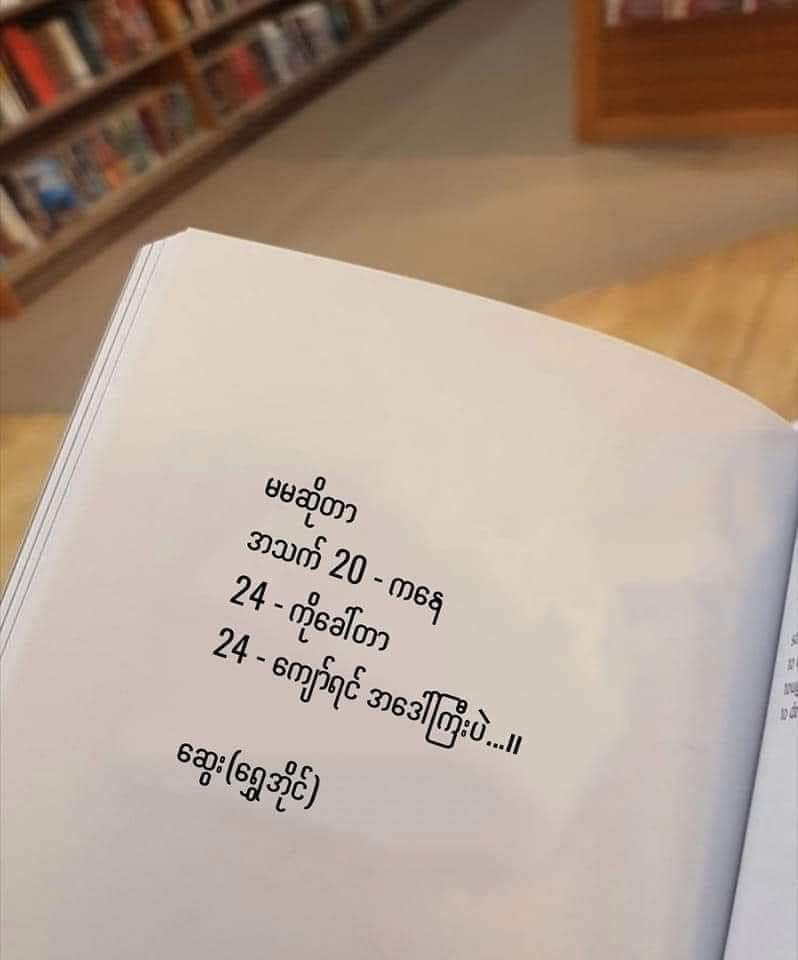 မမဆိုတာ
အသက် 20 - ကနေ
24 - ကိုခေါ်တာ
24 - ကျော်ရင် အဒေါ်ကြီးပဲ...။
ဆွေး(ရွှေအိုင်)